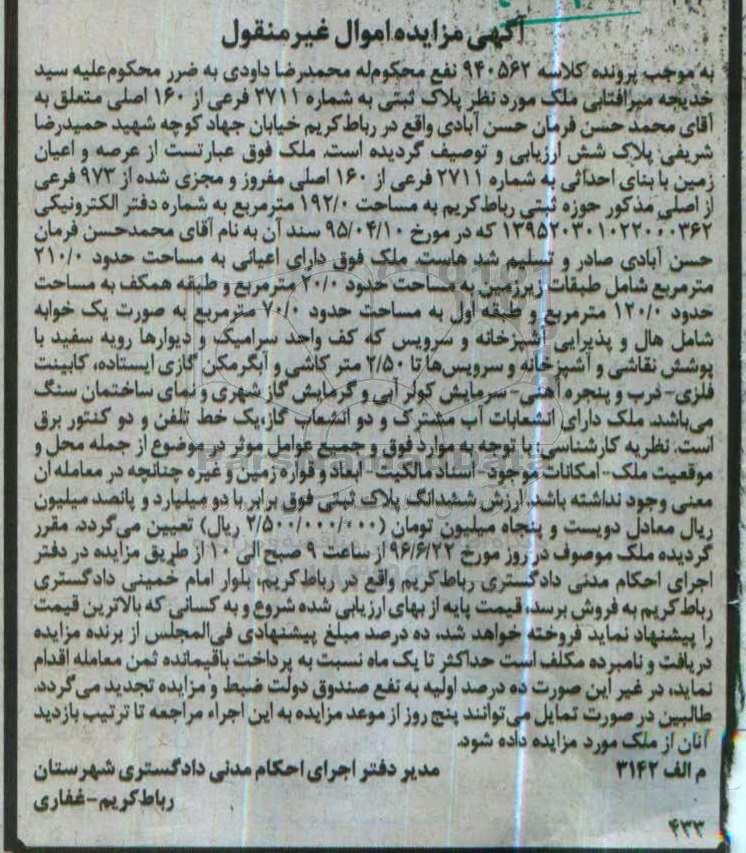 آگهی مزایده اموال غیرمنقول
به موجب پرونده کلاسه ۹۴۰۵۶۲ نفع محکوم‌له محمدرضا داودی به ضرر محکوم‌علیه سید
خدیجه میرافتابی ملک مورد نظر پلاک ثبتی به شماره ۲۷۱۱ فرعی از ۱۶۰ اصلی متعلق به
آقای محمد حسن فرمان حسن آبادی واقع در رباط‌کریم خیابان جهاد کوچه شهید حمیدرضا
شریفی پلاک شش ارزیابی و توصیف گردیده است. ملک فوق عبارتست از عرصه و اعیان
زمین با بنای احداثی به شماره ۲۷۱۱ فرعی از ۱۶۰ اصلی مفروز و مجزی شده از ۹۷۳ فرعی
از اصلی مذکور حوزه ثبتی رباط‌کریم به مساحت ۱۹۲/۰ مترمربع به شماره دفتر الکترونیکی
۱۳۹۵۲۰۳۰۱۰۲۲۰۰۰۳۶۲ که در مورخ ۹۵/۰۴/۱۰ سند آن به نام آقای محمدحسن فرمان
حسن آبادی صادر و تسلیم شد هاست. ملک فوق دارای اعیانی به مساحت حدود ۲۱۰/۰
مترمربع شامل طبقات زیرزمین به مساحت حدود ۲۰/۰ مترمربع و طبقه همکف به مساحت
حدود ۱۲۰/۰ مترمربع و طبقه اول به مساحت حدود ۷۰/۰ مترمربع به صورت یک خوابه
شامل هال و پذیرایی آشپزخانه و سرویس که کف واحد سرامیک و دیوارها رویه سفید با
پوشش نقاشی و آشپزخانه و سرویس‌ها تا ۲/۵۰ متر کاشی و آبگرمکن گازی ایستاده، کابینت
فلزی- درب و پنجره آهنی- سرمایش کولر آبی و گرمایش گاز شهری و نمای ساختمان سنگ
می‌باشد. ملک دارای انشعابات آب مشترک و دو انشعاب گاز، یک خط تلفن و دو کنتور برق
است. نظریه کارشناسی: با توجه به موارد فوق و جمیع عوامل موثر در موضوع از جمله محل و
موقعیت ملک- امکانات موجود- اسناد مالکیت- ابعاد و قواره زمین و غیره چنانچه در معامله ان
معنی وجود نداشته باشد. ارزش ششدانگ پلاک ثبتی فوق برابر با دو میلیارد و پانصد میلیون
ریال معادل دویست و پنجاه میلیون تومان (۲/۵۰۰/۰۰۰/۰۰۰ ریال) تعیین می‌گردد. مقرر
گردیده ملک موصوف در روز مورخ ۹۶/۶/۲۲ از ساعت ۹ صبح الی ۱۰ از طریق مزایده در دفتر
اجرای احکام مدنی دادگستری رباط‌کریم واقع در رباط‌کریم، بلوار امام خمینی دادگستری
رباط‌کریم به فروش برسد، قیمت پایه از بهای ارزیابی شده شروع و به کسانی که بالاترین قیمت
را پیشنهاد نماید فروخته خواهد شد، ده درصد مبلغ پیشنهادی فی‌المجلس از برنده مزایده
دریافت و نامبرده مکلف است حداکثر تا یک ماه نسبت به پرداخت باقیمانده ثمن معامله اقدام
نماید، در غیر این صورت ده درصد اولیه به نفع صندوق دولت ضبط و مزایده تجدید می‌گردد.
طالبین در صورت تمایل می‌توانند پنج روز از موعد مزایده به این اجراء مراجعه تا ترتیب بازدید
آنان از ملک مورد مزایده داده شود.
م الف ۳۱۴۲ مدیر دفتر اجرای احکام مدنی دادگستری شهرستان
رباط‌کریم- غفاری
۴۳۳